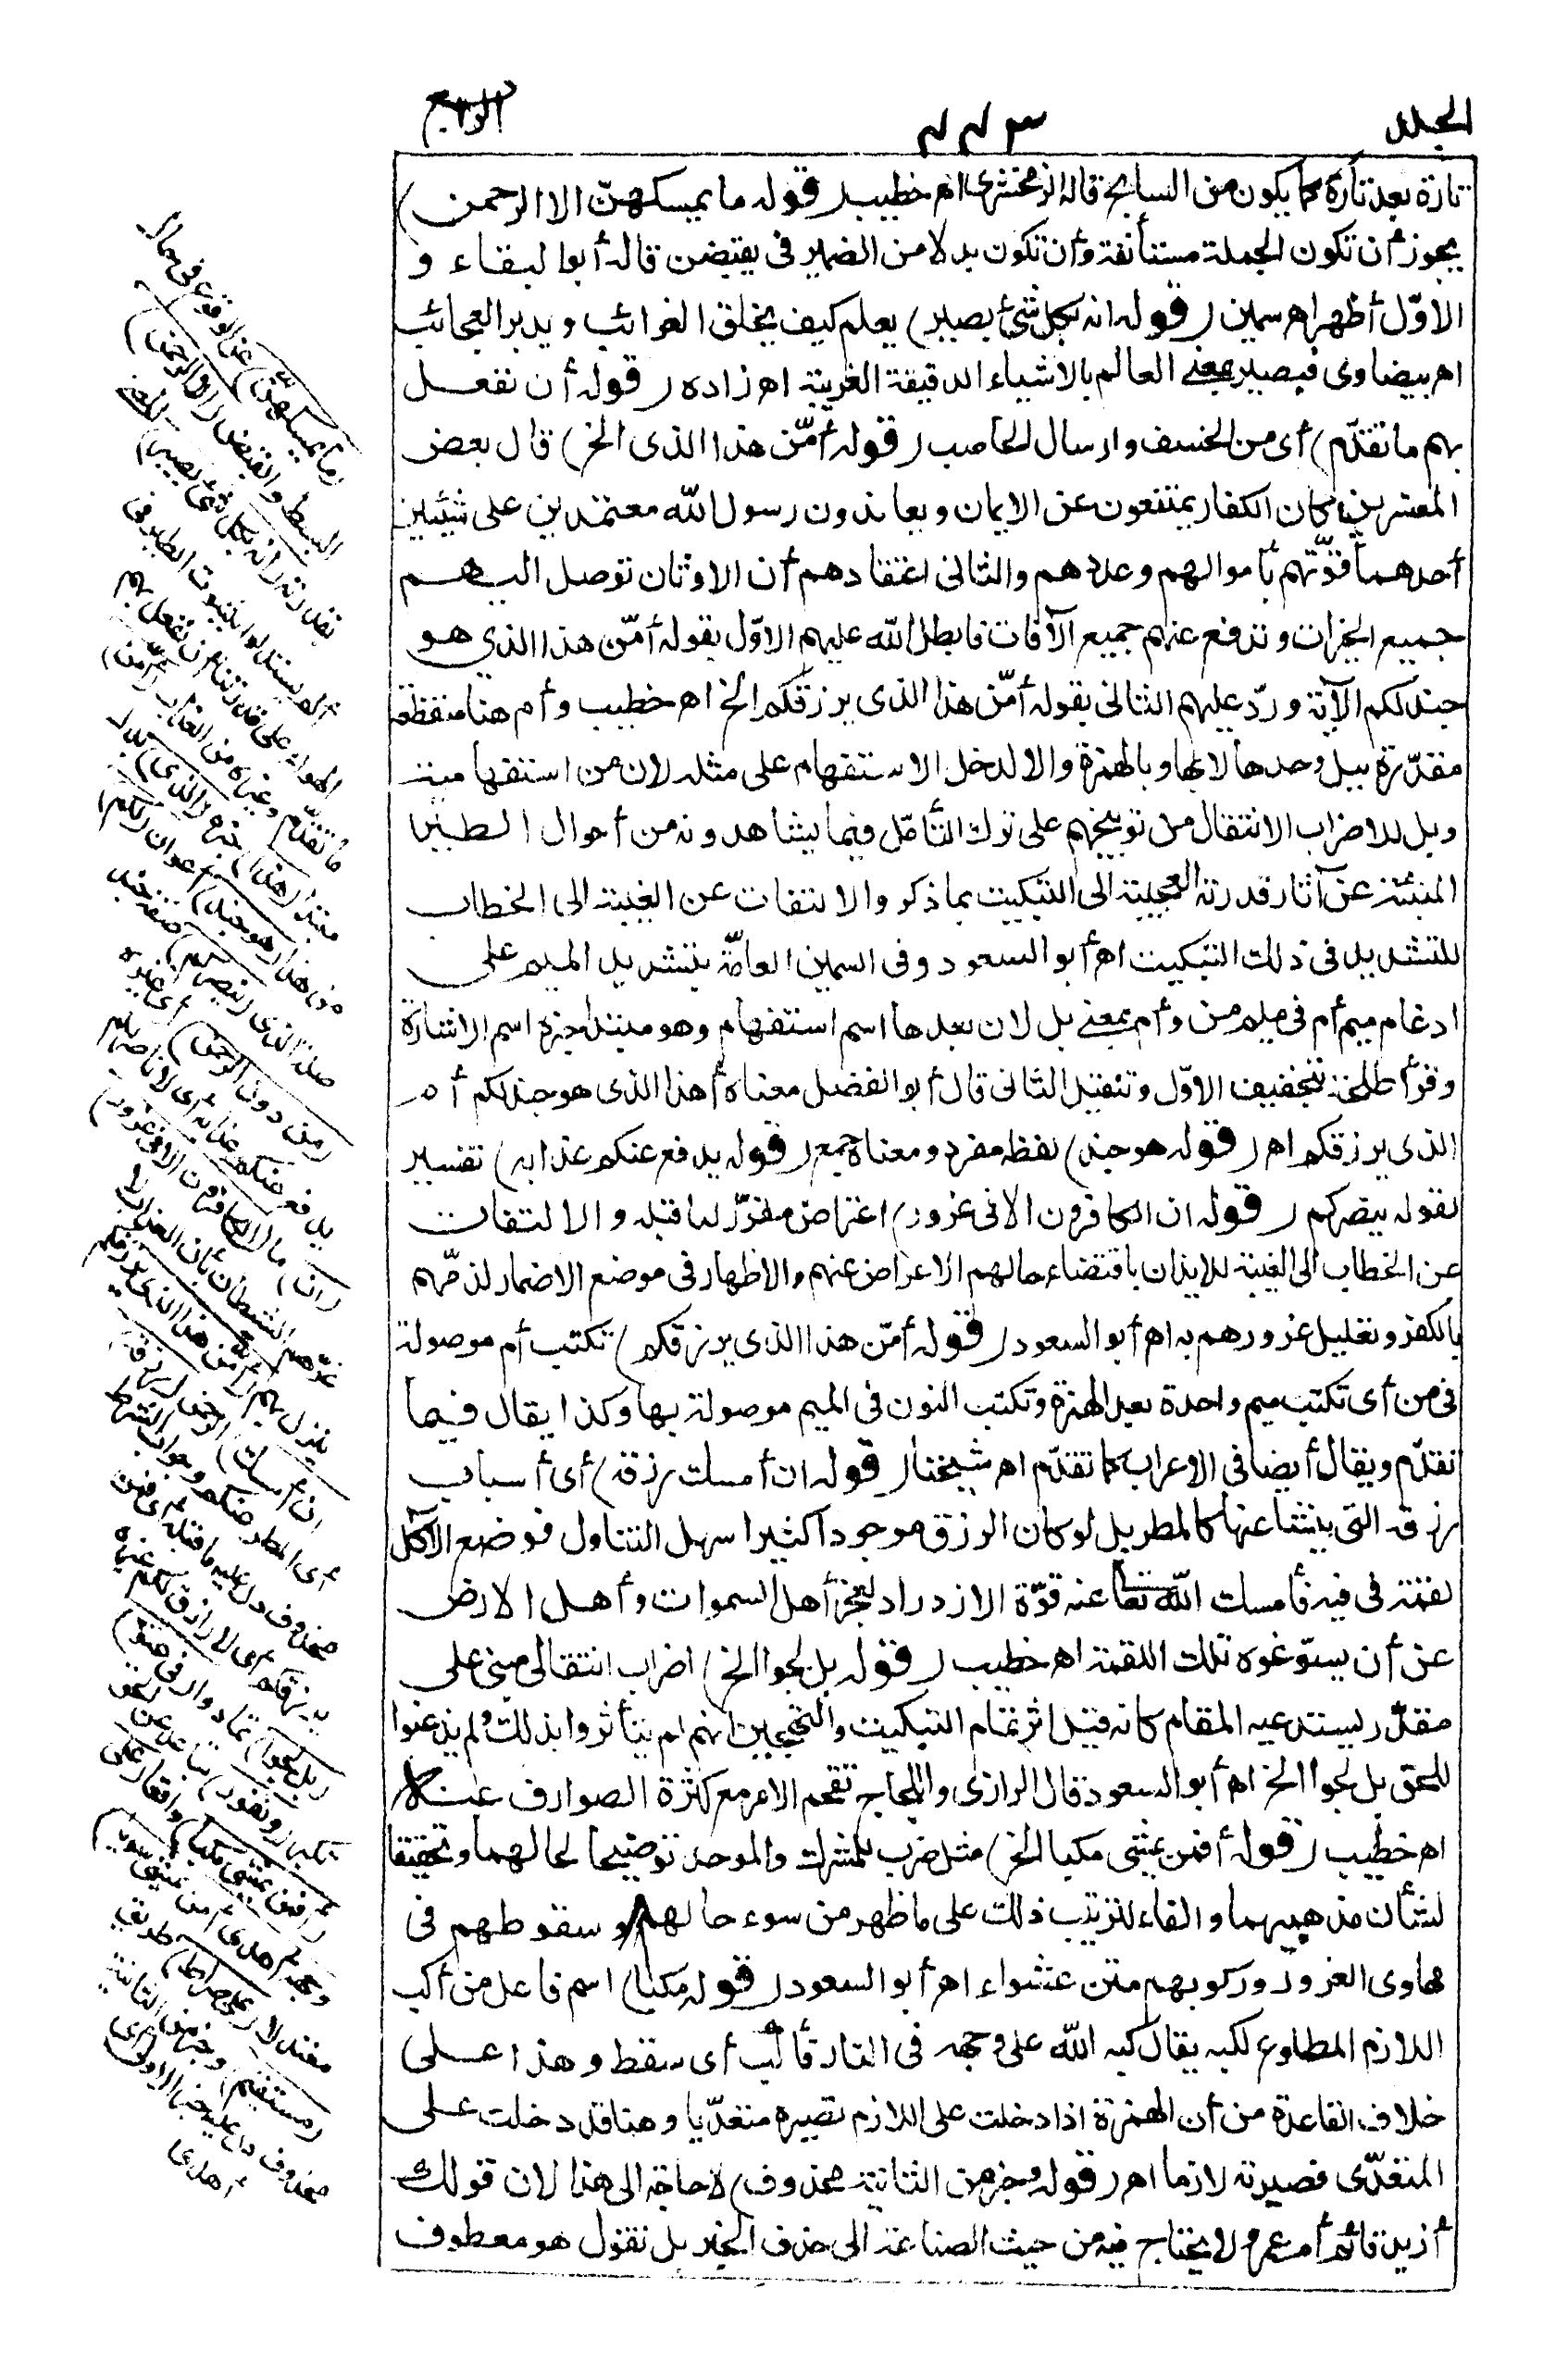 الجلد
٣٧٣
الرابع
تارة بعد تارة كما يكون من السابح قاله الزمخشرى اه خطيب (قوله ما يمسكهنّ الا الرحمن)
يجوز أن تكون الجملة مستأنفة وأن تكون بدلا من الضمير فى يقبضن قاله أبو البقاء و
الاوّل أظهر اه سمين (قوله انه بكل شئ بصير) يعلم كيف يخلق الغرائب ويدبر العجائب
اه بيضاوى فبصير بمعنى العالم بالاشياء الدقيقة الغريبة اه زاده (قوله أن نفعل
بهم ما تقدّم) أى من الخسف وارسال الحاصب (قوله أمّن هذا الذى الخ) قال بعض
المفسرين كان الكفار يمتنعون عن الايمان ويعاندون رسول الله معتمدين على شيئين
أحدهما قوّتهم بأموالهم وعددهم والثانى اعتقادهم أن الاوثان توصل اليهم
جميع الخيرات وتدفع عنهم جميع الآفات فابطل الله عليهم الاوّل بقوله أمّن هذا الذي هو
جند لكم الآية وردّ عليهم الثانى بقوله أمّن هذا الذى يرزقكم الخ اه خطيب وأم هنا منقطعة
مقدّرة ببل وحدها لا بها وبالهمزة والا لدخل الاستفهام على مثله لان من استفهامية
وبل للاضراب الانتقالى من توبيخهم على ترك التأمّل فيما يشاهدونه من أحوال الطير
المنبئة عن آثار قدرته العجيبة الى التبكيت بما ذكر والالتفات عن الغيبة الى الخطاب
للتشديد فى ذلك التبكيت اه أبو السعود وفى السمين العامّة بتشديد الميم على
ادغام ميم أم فى ميم من وأم بمعنى بل لان بعدها اسم استفهام وهو مبتدأ خبره اسم الاشارة
وقرأ طلحة بتخفيف الاوّل وتثقيل الثانى قال أبو الفضل معناه أهذا الذى هو جند لكم أم
الذى يرزقكم اه (قوله هو جند) لفظه مفرد ومعناه جمع (قوله يدفع عنكم عذابه) تفسير
لقوله ينصركم (قوله ان الكافرون الا فى غرور) اعتراض مقرّر لما قبله والالتفات
عن الخطاب الى الغيبة للايذان باقتضاء حالهم الاعراض عنهم والاظهار فى موضع الاضمار لذمّهم
بالكفر وتعليل غرورهم به اه أبو السعود (قوله أمّن هذا الذى يرزقكم) تكتب أم موصولة
فى من أى تكتب ميم واحدة بعد الهمزة وتكتب النون فى الميم موصولة بها وكذا يقال فيما
تقدّم ويقال أيضا فى الاعراب كما تقدّم اه شيخنا (قوله ان أمسك رزقه) أى أسباب
رزقه التى ينشأ عنها كالمطر بل لو كان الرزق موجودا كثيرا سهل التناول فوضع الآكل
لقمة فى فيه فأمسك الله تعا عنه قوّة الازدراد لعجز أهل السموات وأهل الارض
عن أن يسوّغوه تلك اللقمة اه خطيب (قوله بل لجوا الخ) اضراب انتقالى مبنى على
مقدّر يستدعيه المقام كانه قيل اثر تمام التبكيت والتعجيب انهم لم يتأثروا بذلك ولم يذعنوا
للحق بل لجوا الخ اه أبو السعود قال الرازى واللجاج تقحم الامر مع كثرة الصوارف عنه
اه خطيب (قوله أفمن يمشى مكبا الخ) مثل ضرب للمشرك والموحد توضيحا لحالهما وتحقيقا
لشأن مذهبيهما والفاء لترتيب ذلك على ما ظهر من سوء حالهم وسقوطهم فى
مهاوى الغرور وركوبهم متن عشواء اه أبو السعود (قوله مكبا) اسم فاعل من أكب
اللازم المطاوع لكبه يقال كبه الله على وجهه فى النار فأكب أى سقط وهذا على
خلاف القاعدة من أن الهمزة اذا دخلت على اللازم تصيره متعدّيا وهنا قد دخلت على
المتعدّى فصيرته لازما اه (قوله وخبر من الثانية محذوف) لا حاجة الى هذا لان قولك
أزيد قائم أم عمرو لا يحتاج فيه من حيث الصناعة الى حذف الخبر بل نقول هو معطوف
(ما يمسكهنّ) عن الوقوع فى حال
البسط والقبض (الا الرحمن)
بقدرته (انه بكل شئ بصير) المعنى
ألم يستدلوا بثبوت الطير فى
الهواء على قدرتنا أن نفعل بهم
ما تقدّم وغيره من العذاب (أمّن)
مبتدأ (هذا) خبره (الذى) بدل
من هذا (هو جند) أعوان (لكم)
صلة الذى (ينصركم) صفة جند
(من دون الرحمن) أى غيره
يدفع عنكم عذابه أى لا ناصر لكم
(ان) ما (الكافرون الا فى غرور)
غرّهم الشيطان بأن العذاب لا
ينزل بهم (أمّن هذا الذى يرزقكم
ان أمسك) الرحمن (رزقه)
أى المطر عنكم وجواب الشرط
محذوف دل عليه ما قبله أى فمن
يرزقكم أى لا رازق لكم غيره
(بل لجوا) تمادوا (فى عتوّ)
تكبر (ونفور) تباعد عن الحق
(أفمن يمشى مكبا) واقعا (على
وجهه أهدى أمن يمشى سويا)
معتدلا (على صراط) طريق
(مستقيم) وخبر من الثانية
محذوف دل عليه خبر الاولى أى
أهدى